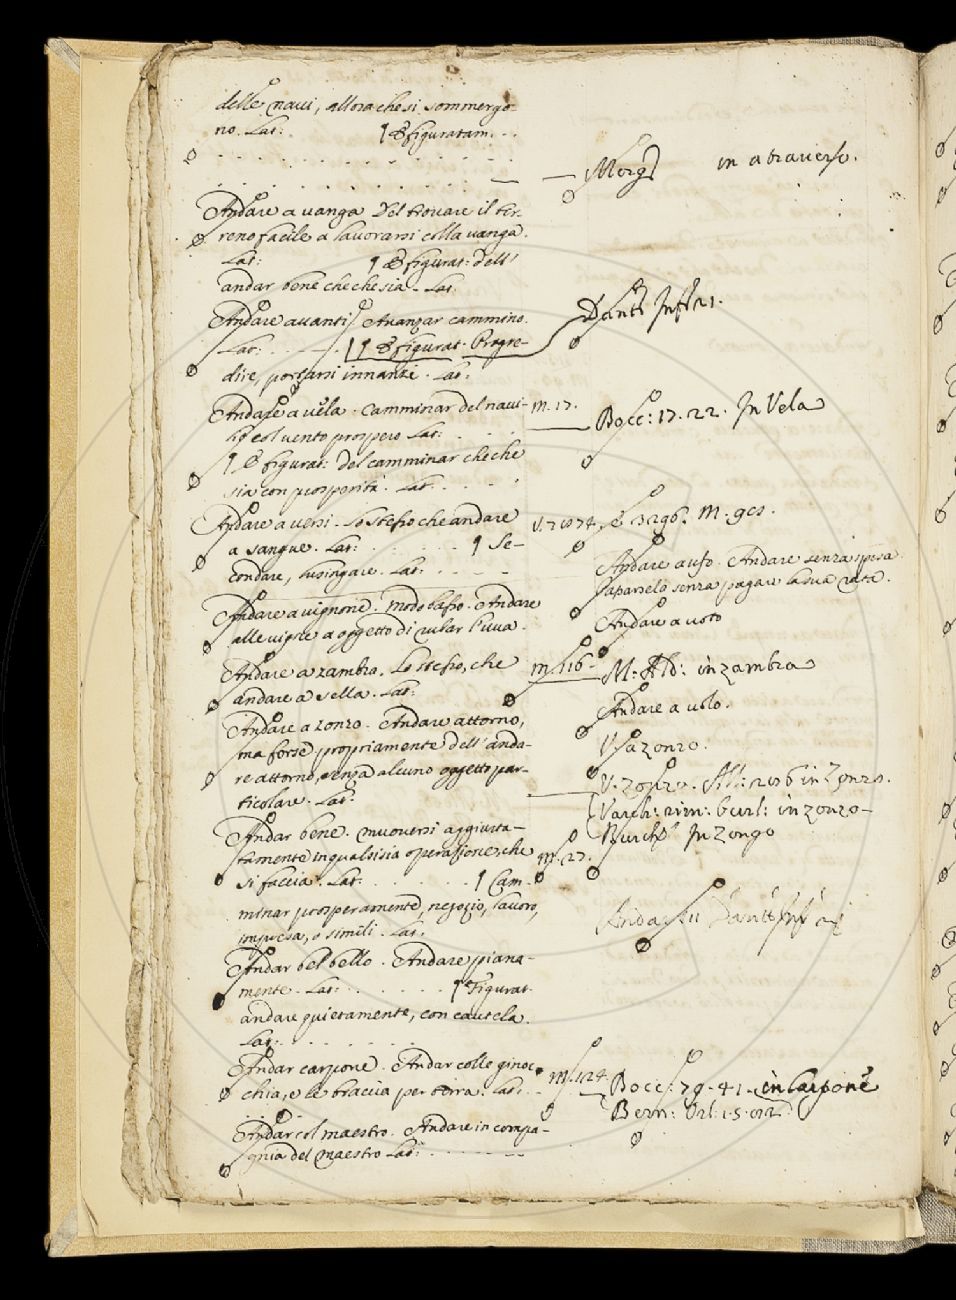 delle navi, allora che si sommergo-
no. Lat: ¶ E figuratam. . .
Andare a vanga. Del trovare il ter-
reno facile a lavorarsi colla vanga.
Lat: ¶ E figurat: dell'
andar bene checchesia. Lat.
Andare avanti. Avanzar cammino.
Lat: ¶ E figurat. Progre-
dire, portarsi innanzi. Lat.
Andare a vela. Camminar del navi-
lio col vento prospero Lat:
¶ E figurat: del camminar che che
sia con prosperità. Lat.
Andare a versi. Lo stesso che andare
a sangue. Lat: ¶ Se-
condare, lusingare. Lat:
Andare a vignone. modo basso. Andare
alle vigne a oggetto di rubar l'uva.
Andare a zambra. Lo stesso, che
andare a sella. Lat:
Andare a zonzo. Andare attorno,
ma forse propriamente dell'anda-
re attorno, senza alcuno oggetto par-
ticolare. Lat:
Andar bene. muoversi aggiusta-
tamente in qualsisia operazione, che
si faccia. Lat. ¶ Cam-
minar prosperamente, negozio, lavoro,
impresa, o simili. Lat.
Andar bel bello. Andare piana-
mente. Lat: ¶ Figurat.
andare quietamente, con cautela.
Lat:
Andar carpone. Andar colle ginoc-
chia, e le braccia per terra. Lat:
Andar col maestro. Andare in compa-
gnia del maestro Lat:
in atraverso.
Dante Inf. 21.
m. 17.
Bocc: 17. 22. In Vela
Andare a ufo. Andare senza spesa
senza pagare la sua rata.
Andare a voto
m. 116-
M. Ald: in zambra
Andare a volo.
V. a zonzo.
in Zonzo.
Varch: rim: burl: in zonzo-
In Zonzo
m. 27.
m. 124
Bocc: 79. 41. in Carpone
Bern: Orl: 1. 5.